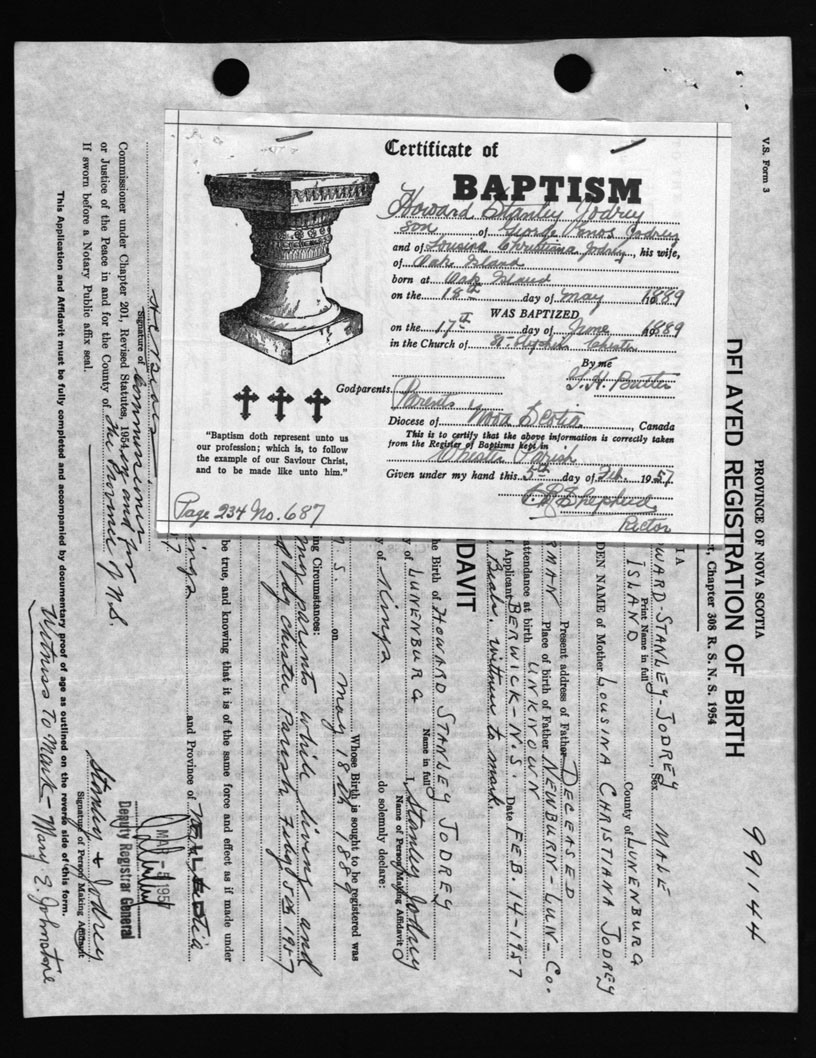 Certificate of
BAPTISM
Howard Stanley Jodrey
Son of George Jodrey
and of Lousina Christiana Jodrey, his wife,
of Oak Island
born at Oak Island
on the 18th day of May 1889
WAS BAPTIZED
on the 17th day of June 1889
in the Church of St. Stephen Chester
By me
G. H. Butler
Godparents Parents
Diocese of Nova Scotia, Canada
This is to certify that the above information is correctly taken
from the Register of Baptisms kept in
Chester Parish
Given under my hand this 5th day of Feb. 1957
Shepherd
Rector
"Baptism doth represent unto us
our profession; which is, to follow
the example of our Saviour Christ,
and to be made like unto him."
Page 234 No. 687
V.S. Form 3
99144
PROVINCE OF NOVA SCOTIA
DELAYED REGISTRATION OF BIRTH
r, Chapter 308 R. S. N. S. 1954
IA
WARD-STANLEY-JODREY, Sex MALE
Print Name in full
ISLAND County of LUNENBURG
DEN NAME of Mother LOUSINA CHRISTIANA JODREY
Present address of Father DECEASED
RMAN Place of birth of Father NEWBURN-LUN-CO.
attendance at birth UNKNOWN
Applicant BERWICK-N.S. Date FEB. 14-1957
witness to mark.
DAVIT
he Birth of HOWARD STANLEY JODREY
Name in full
y of LUNENBURG I, Stanley Jodrey
Name of Person Making Affidavit
y of Kings do solemnly declare:
Whose Birth is sought to be registered was
N.S. on May 18th 1889
ng Circumstances:
my parents while living and
by Chester Parish Feby 5th 1957
be true, and knowing that it is of the same force and effect as if made under
ings and Province of Nova Scotia
7
MAR - 5 1957
Deputy Registrar General
Stanley + Jodrey
Signature of Person Making Affidavit
Signature of Commissioner
Commissioner under Chapter 201, Revised Statutes, 1954 in and for
or Justice of the Peace in and for the County of the Province of N.S.
If sworn before a Notary Public affix seal.
This Application and Affidavit must be fully completed and accompanied by documentary proof of age as outlined on the reverse side of this form.
Witness to Mark - Mary E. Johnstone